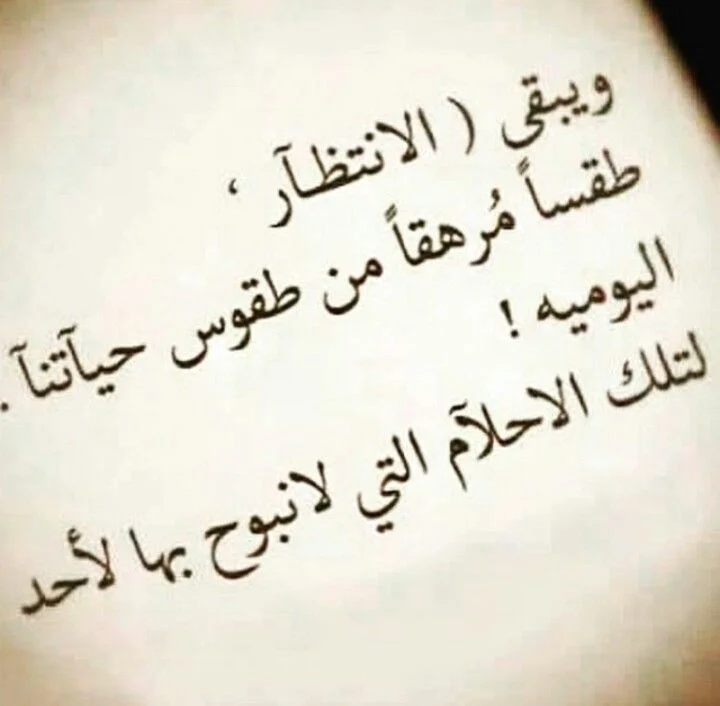 ويبقى ( الانتظآر ،
طقساً مُرهقاً من طقوس حيآتنآ .
اليوميه !
لتلك الاحلآم التي لانبوح بها لأحد